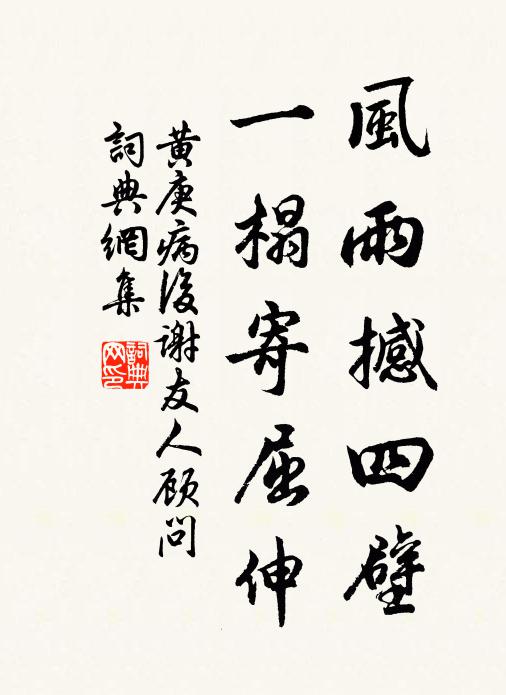 風雨撼四壁
一榻寄屈伸
黄庚病後谢友人顾問
詞典網集
詞典网印